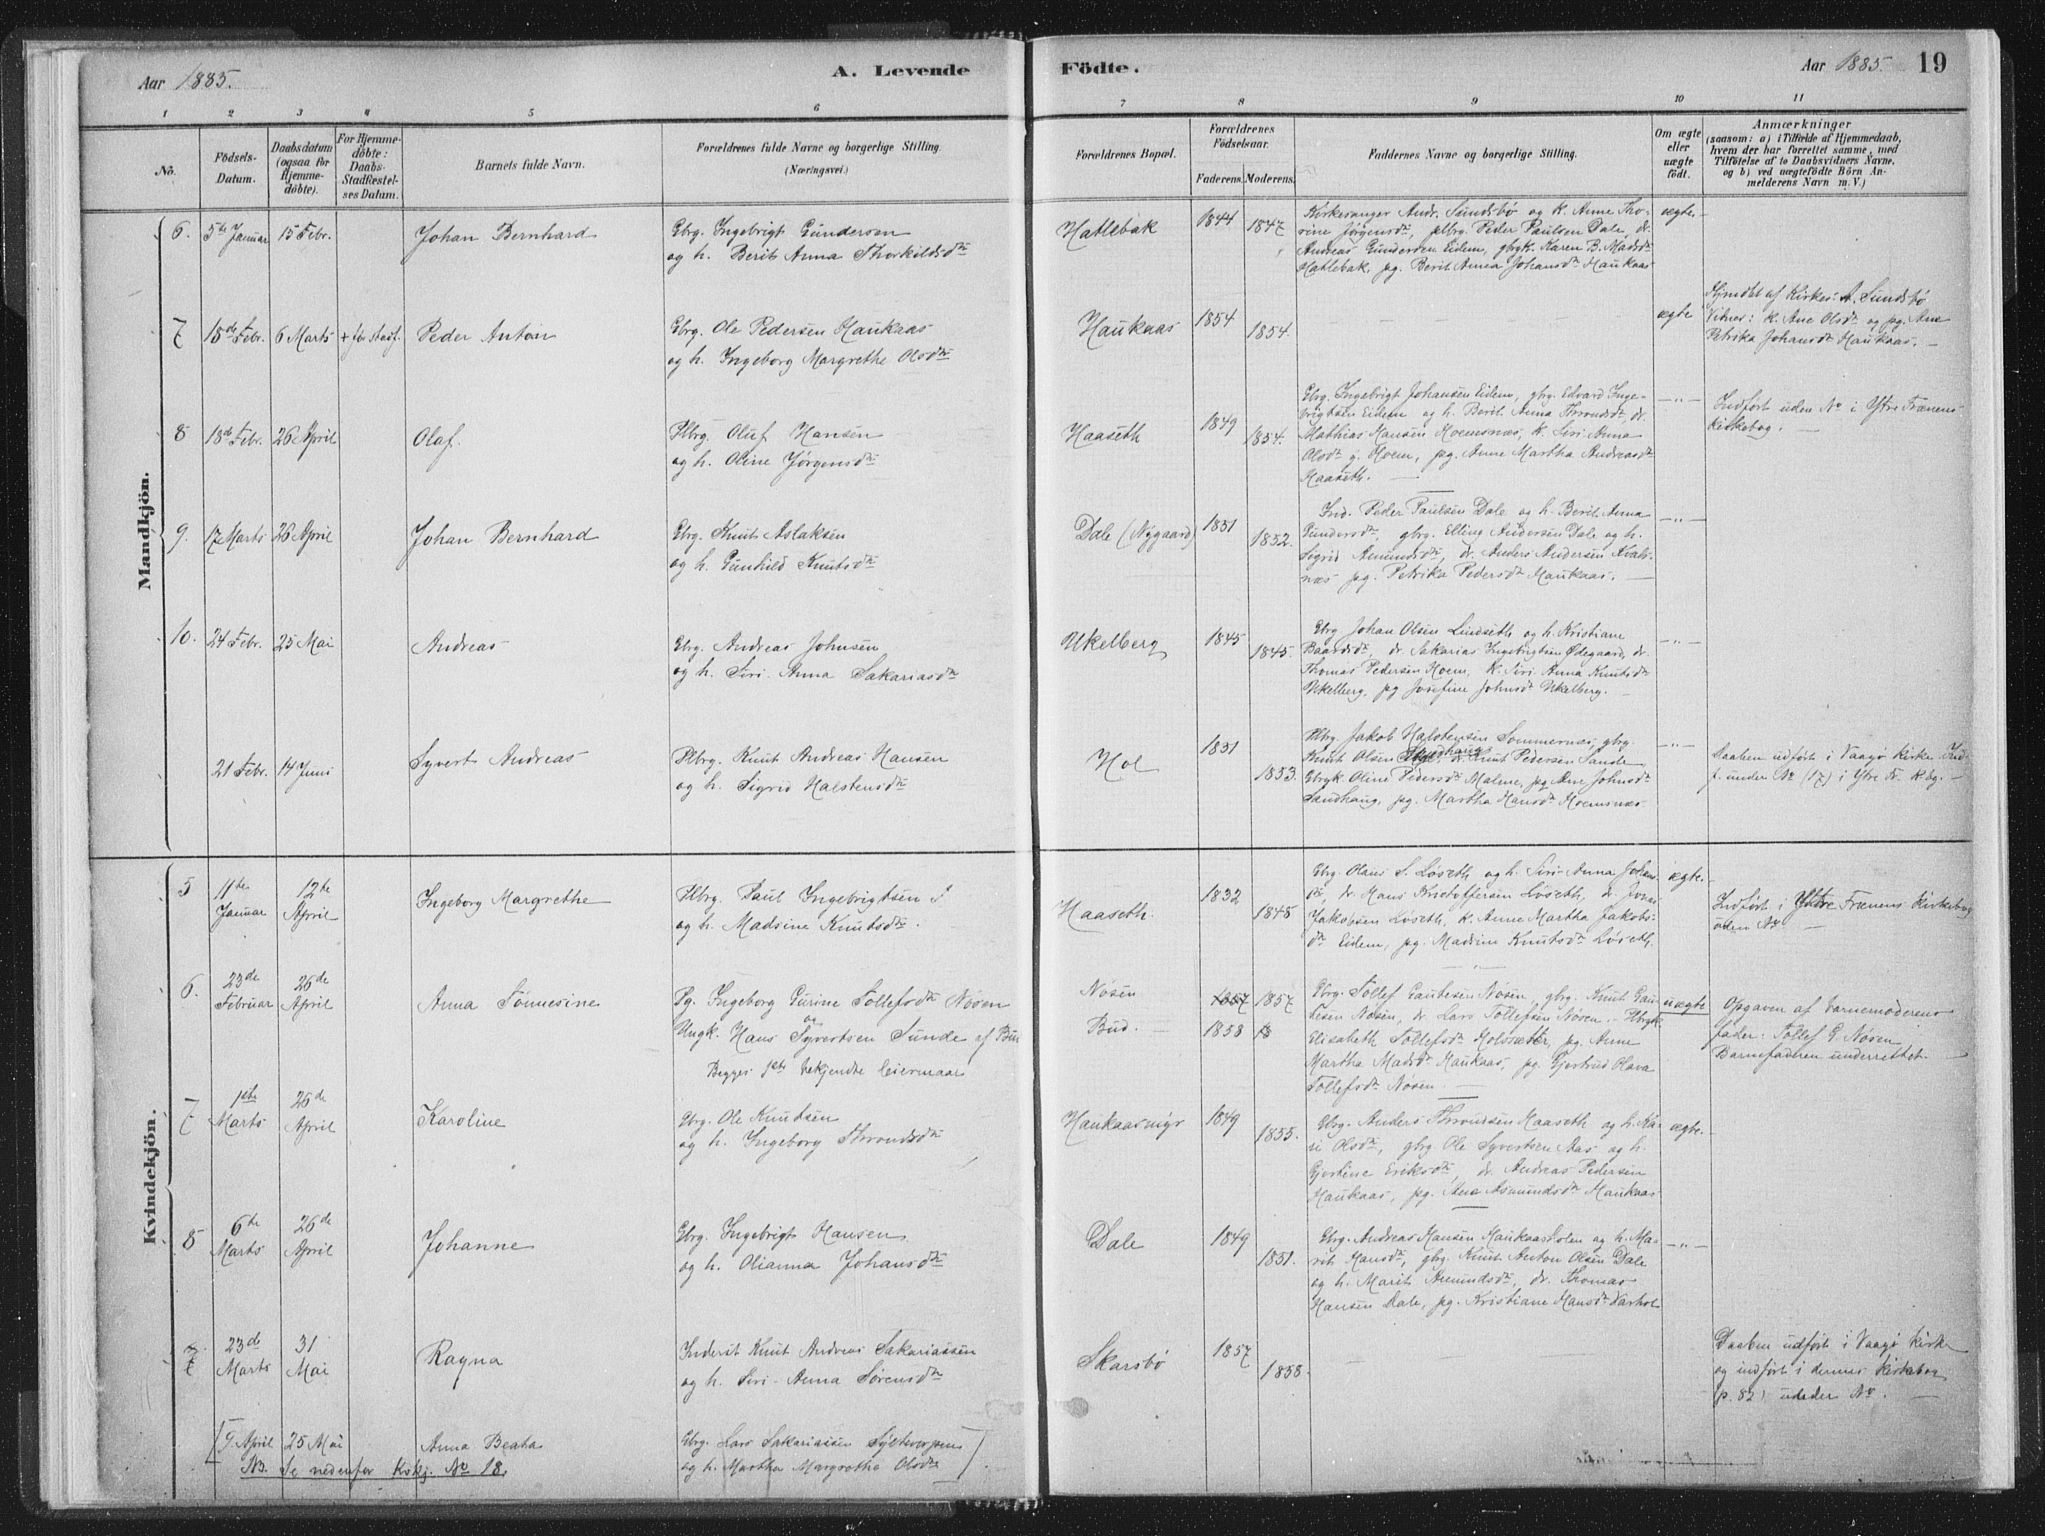 Aar 1885.
A. Levende Födte.
Aar 1885. 19
1 2 3 4 5 6 7 8 9 10 11
No. Födsels-Datum. Daabsdatum (ogsaa for Hjemme-döbte). For Hjemme-döbte: Daabs-Stadfæstel-ses Datum. Barnets fulde Navn. Forældrenes fulde Navne og borgerlige Stilling. (Næringsvei.) Forældrenes Bopæl. Forældrenes Födselsaar. Faderens. Moderens. Faddernes Navne og borgerlige Stilling. Om ægte eller uægte födt. Anmærkninger (saasom: a) i Tilfælde af Hjemmedaab, hvem der har forrettet samme, med Tilföielse af to Daabsvidners Navne, og b) ved uægtefödte Börn An-melderens Navn m. V.)
Mandkjön.
6. 5te Januar 15 Febr. Johan Bernhard Gbrg. Ingebrigt Gundersen
og h. Berit Anna Thorkildsdtr
Hatlebak 1844 1847
Kirkesanger Andr. Sundsbö og K. Anne Tho-
rine Jörgensdtr, Peder Paulsen Dale, dr.
Andreas Gundersen Eidem, gbrgk. Karen B. Madsdtr
Hatlebak, pg. Berit Anna Johansdtr Haukaas
ægte.
7 18de Febr. 6 Marts + før Stadf. Peder Anton Gbrg. Ole Pedersen Haukaas
og h. Ingeborg Margrethe Olsdtr
Haukaas 1854 1854. ægte
Hjmdbt af Kirkes: A. Sundsbö
Vidner: K. Ane Olsdtr og pg. Ane
Petrika Johansdtr Haukaas.
8 18de Febr. 26 April Olaf. Hbrg. Oluf Hansen
og h. Oline Jörgensdtr
Haaseth 1849 1854.
Gbrg. Ingebrigt Johansen Eidem, gbrg. Edvard Inge-
brigtsen Eidem og h. Berit Anna Throndsdtr, dr.
Mathias Hansen Hoemsnæs, K. Siri Anna
Olsdtr g. Hoem, pg. Anne Martha Andreasdtr
Haaseth.
—"—
Indført uden No i Ytre Frænens
Kirkebog.
9. 17 Marts 26 April Johan Bernhard Gbrg. Knut Aslaksen
og h. Gunhild Knutsdtr
Dale (Nygaard) 1851 1852.
Ind. Peder Paulsen Dale og h. Berit Anna
Gundersdtr, gbrg. Elling Andersen Dale og h.
Sigrid Amundsdtr, dr. Anders Andersen Hvals-
næs pg. Petrika Pedersdtr Haukaas.
—"—
10. 24 Febr. 25 Mai Andreas Gbrg. Andreas Johnsen
og h. Siri Anna Sakariasdtr
Ukelberg 1845 1845.
Gbrg Johan Olsen Lindseth og h. Kristiane
Baardsdtr, dr. Sakarias Ingebrigtsen Ødegaard, dr.
Thomas Pedersen Hoem, K. Siri Anna Knutsdtr
Ukelberg, pg Josefine Johnsdtr Ukelberg.
—"—
21 Febr. 14 Juni Syvert Andreas Hbrg. Knut Andreas Hansen
og h. Sigrid Halstensdtr
Hol 1851 1853.
Hbrg. Jakob Halstensen Sommernes, gbrg.
Knut Olsen Sandhaug, dr. Knut Pedersen Sande
Gbrgk Oline Pedersdtr Malme, pg Ane Johnsdtr
Sandhaug, pg. Martha Hansdtr Hoemsnæs
—"—
Daaben udført i Vaagø Kirke. Ind-
f. under No (17) i Ytre Fr. K.bg.
Kvindekjön.
5 11te Januar 12te April Ingeborg Margrethe Hbrg. Paul Ingebrigtsen
og h. Madsine Knutsdtr.
Haaseth. 1832 1845
Gbrg. Olaus S. Løseth og h. Siri Anna Johans-
dtr, dr. Hans Kristoffersen Løseth, dr. Jonas
Jakobsen Løseth, K. Anne Martha Jakobs-
dtr Eidem, pg. Madsine Knutsdtr Løseth.
ægte.
Indført i Ytre Frænens Kirkebog
uden No
6. 23de Februar 26de April Anna Tønnesine Pg. Ingeborg Gurine Tollefsdtr Nøsen
og
Ungk. Hans Syvertsen Sunde af Bud
Begges 1ste bekjendte leiermaal
Nøsen
Bud.
1857 1857
1858 18
Gbrg. Tollef Gautesen Nøsen, gbrg. Knut Gau-
tesen Nøsen, dr. Lars Tollefsen Nøsen. Hbrgk.
Elisabeth Tollefsdtr Holsæter, pg. Anne
Martha Madsdtr Haukaas, pg. Gjertrud Olava
Tollefsdtr Nøsen.
uægte
Opgaven af Barnemoderens
fader: Tollef G. Nøsen
Barnefaderen underrettet.
7 1ste Marts 26de April Karoline Gbrg. Ole Knutsen
og h. Ingeborg Throndsdtr
Haukaasmyr 1849 1855.
Gbrg. Anders Throndsen Haaseth og h. Ka-
ri Olsdtr, gbrg Ole Syvertsen Aas og h.
Gjertine Eriksdtr, dr. Andreas Pedersen
Haukaas, pg. Ane Asmundsdtr Haukaas
ægte.
8 6te Marts 26de April Johanne Gbrg. Ingebrigt Hansen
og h. Olianna Johansdtr
Dale 1849 1851.
Gbrg. Andreas Hansen Haukaasholen og h. Ma-
rit Hansdtr, gbrg. Knut Anton Olsen Dale
og h. Marit Amundsdtr, dr. Thomas
Hansen Dale, pg. Kristiane Hansdtr Varhol
—"—
23de Marts 31 Mai Ragna Inderst Knut Andreas Sakariassen
og h. Siri Anna Sørensdtr
Skarsbö 1857 1858.
Daaben udført i Vaagø Kirke
og indført i dennes Kirkebog
(p. 82) under No.
[7. April 25 Mai Anna Beata Gbrg. Lars Sakariassen
og h. Martha Margretha Olsdtr ]
NB. Se nedenfor Kvkj. No 18.